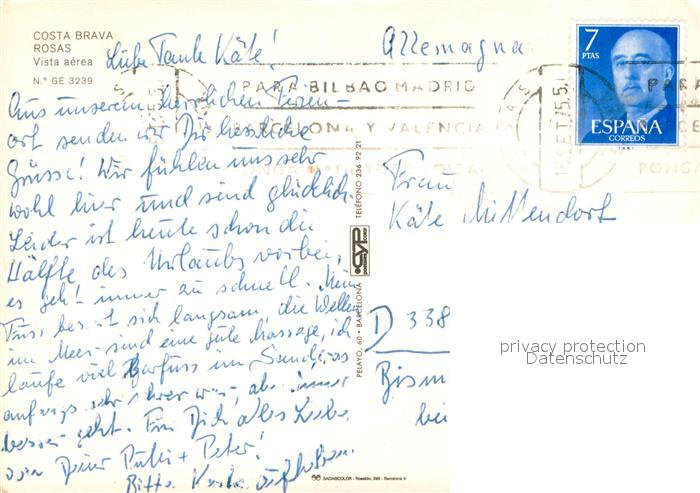 COSTA BRAVA
ROSAS
Vista aérea
N.º GE 3239
Liebe Tante Käte!
Aus unserem herrlichen Ferien-
ort senden wir Dir herzliche
Grüsse! Wir fühlen uns sehr
wohl hier und sind glücklich.
Leider ist heute schon die
Hälfte des Urlaubs vorbei,
es geht immer zu schnell. Mein
Fuss bessert sich langsam, die Wellen
im Meer sind eine gute Massage, ich
laufe viel Barfuss im Sand, was
anfangs sehr schwer war, aber immer
besser geht. Für Dich alles Liebe
von Deiner Putti + Peter!
Bitte Karte aufheben.
Allemagna
PARA BILBAO MADRID
BARCELONA Y VALENCIA
PARA
PONGA
7
PTAS
ESPAÑA
CORREOS
Frau
Käte Mittendorf
D 338
Bism
bei
PELAYO, 60 - BARCELONA
TELÉFONO 236 92 21
CYP
SADAGCOLOR - Rosellón, 298 - Barcelona
privacy protection
Datenschutz